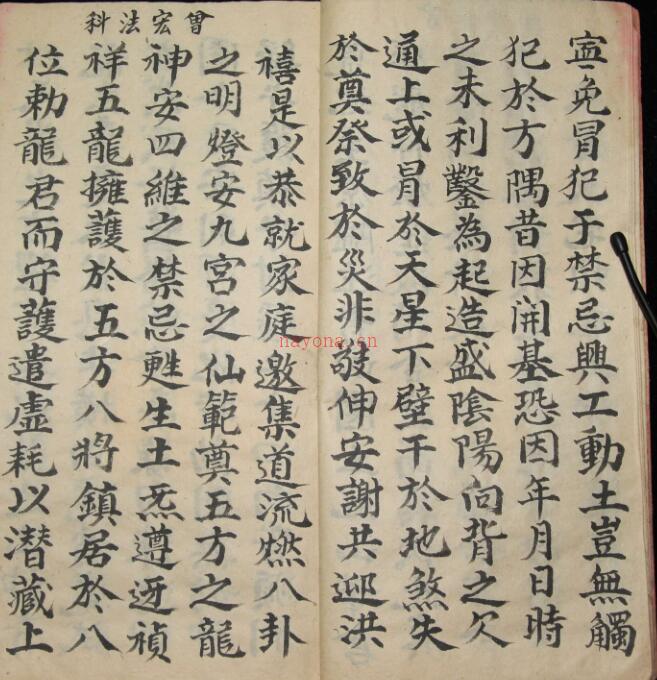 寍免冒犯于禁忌興工動土豈無觸
犯於方隅昔因開基恐因年月日時
之未利鑿為起造盛陰陽向背之欠
通上或冒於天星下壁干於地煞失
於奠祭致於災非敬伸安謝共迎洪
禧是以恭就家庭邀集道流燃八卦
之明燈安九宮之仙範奠五方之龍
神安四維之禁忌甦生土炁遵迓禎
祥五龍擁護於五方八將鎮居於八
位勅龍君而守護遣虛耗以潛藏上
曾宏法科
nayona.cn